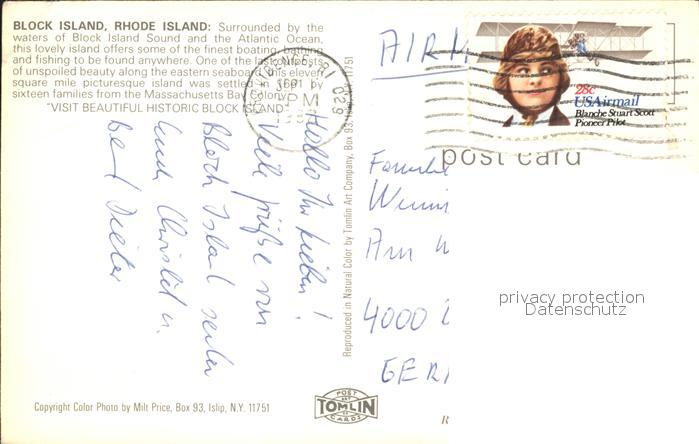 BLOCK ISLAND, RHODE ISLAND: Surrounded by the
waters of Block Island Sound and the Atlantic Ocean,
this lovely island offers some of the finest boating, bathing
and fishing to be found anywhere. One of the last outposts
of unspoiled beauty along the eastern seaboard, this eleven
square mile picturesque island was settled in 1661 by
sixteen families from the Massachusetts Bay Colony.
"VISIT BEAUTIFUL HISTORIC BLOCK ISLAND"
Hallo Ihr Lieben!
Viele Grüße von
Block Island senden
Euch Christel u.
Dieter
Reproduced in Natural Color by Tomlin Art Company, Box 93, Islip, N.Y. 11751
Copyright Color Photo by Milt Price, Box 93, Islip, N.Y. 11751
POST
TOMLIN
CARDS
PM
028
AIR
28c
USAirmail
Blanche Stuart Scott
Pioneer Pilot
post card
Familie
Am
4000
GER
privacy protection
Datenschutz
R